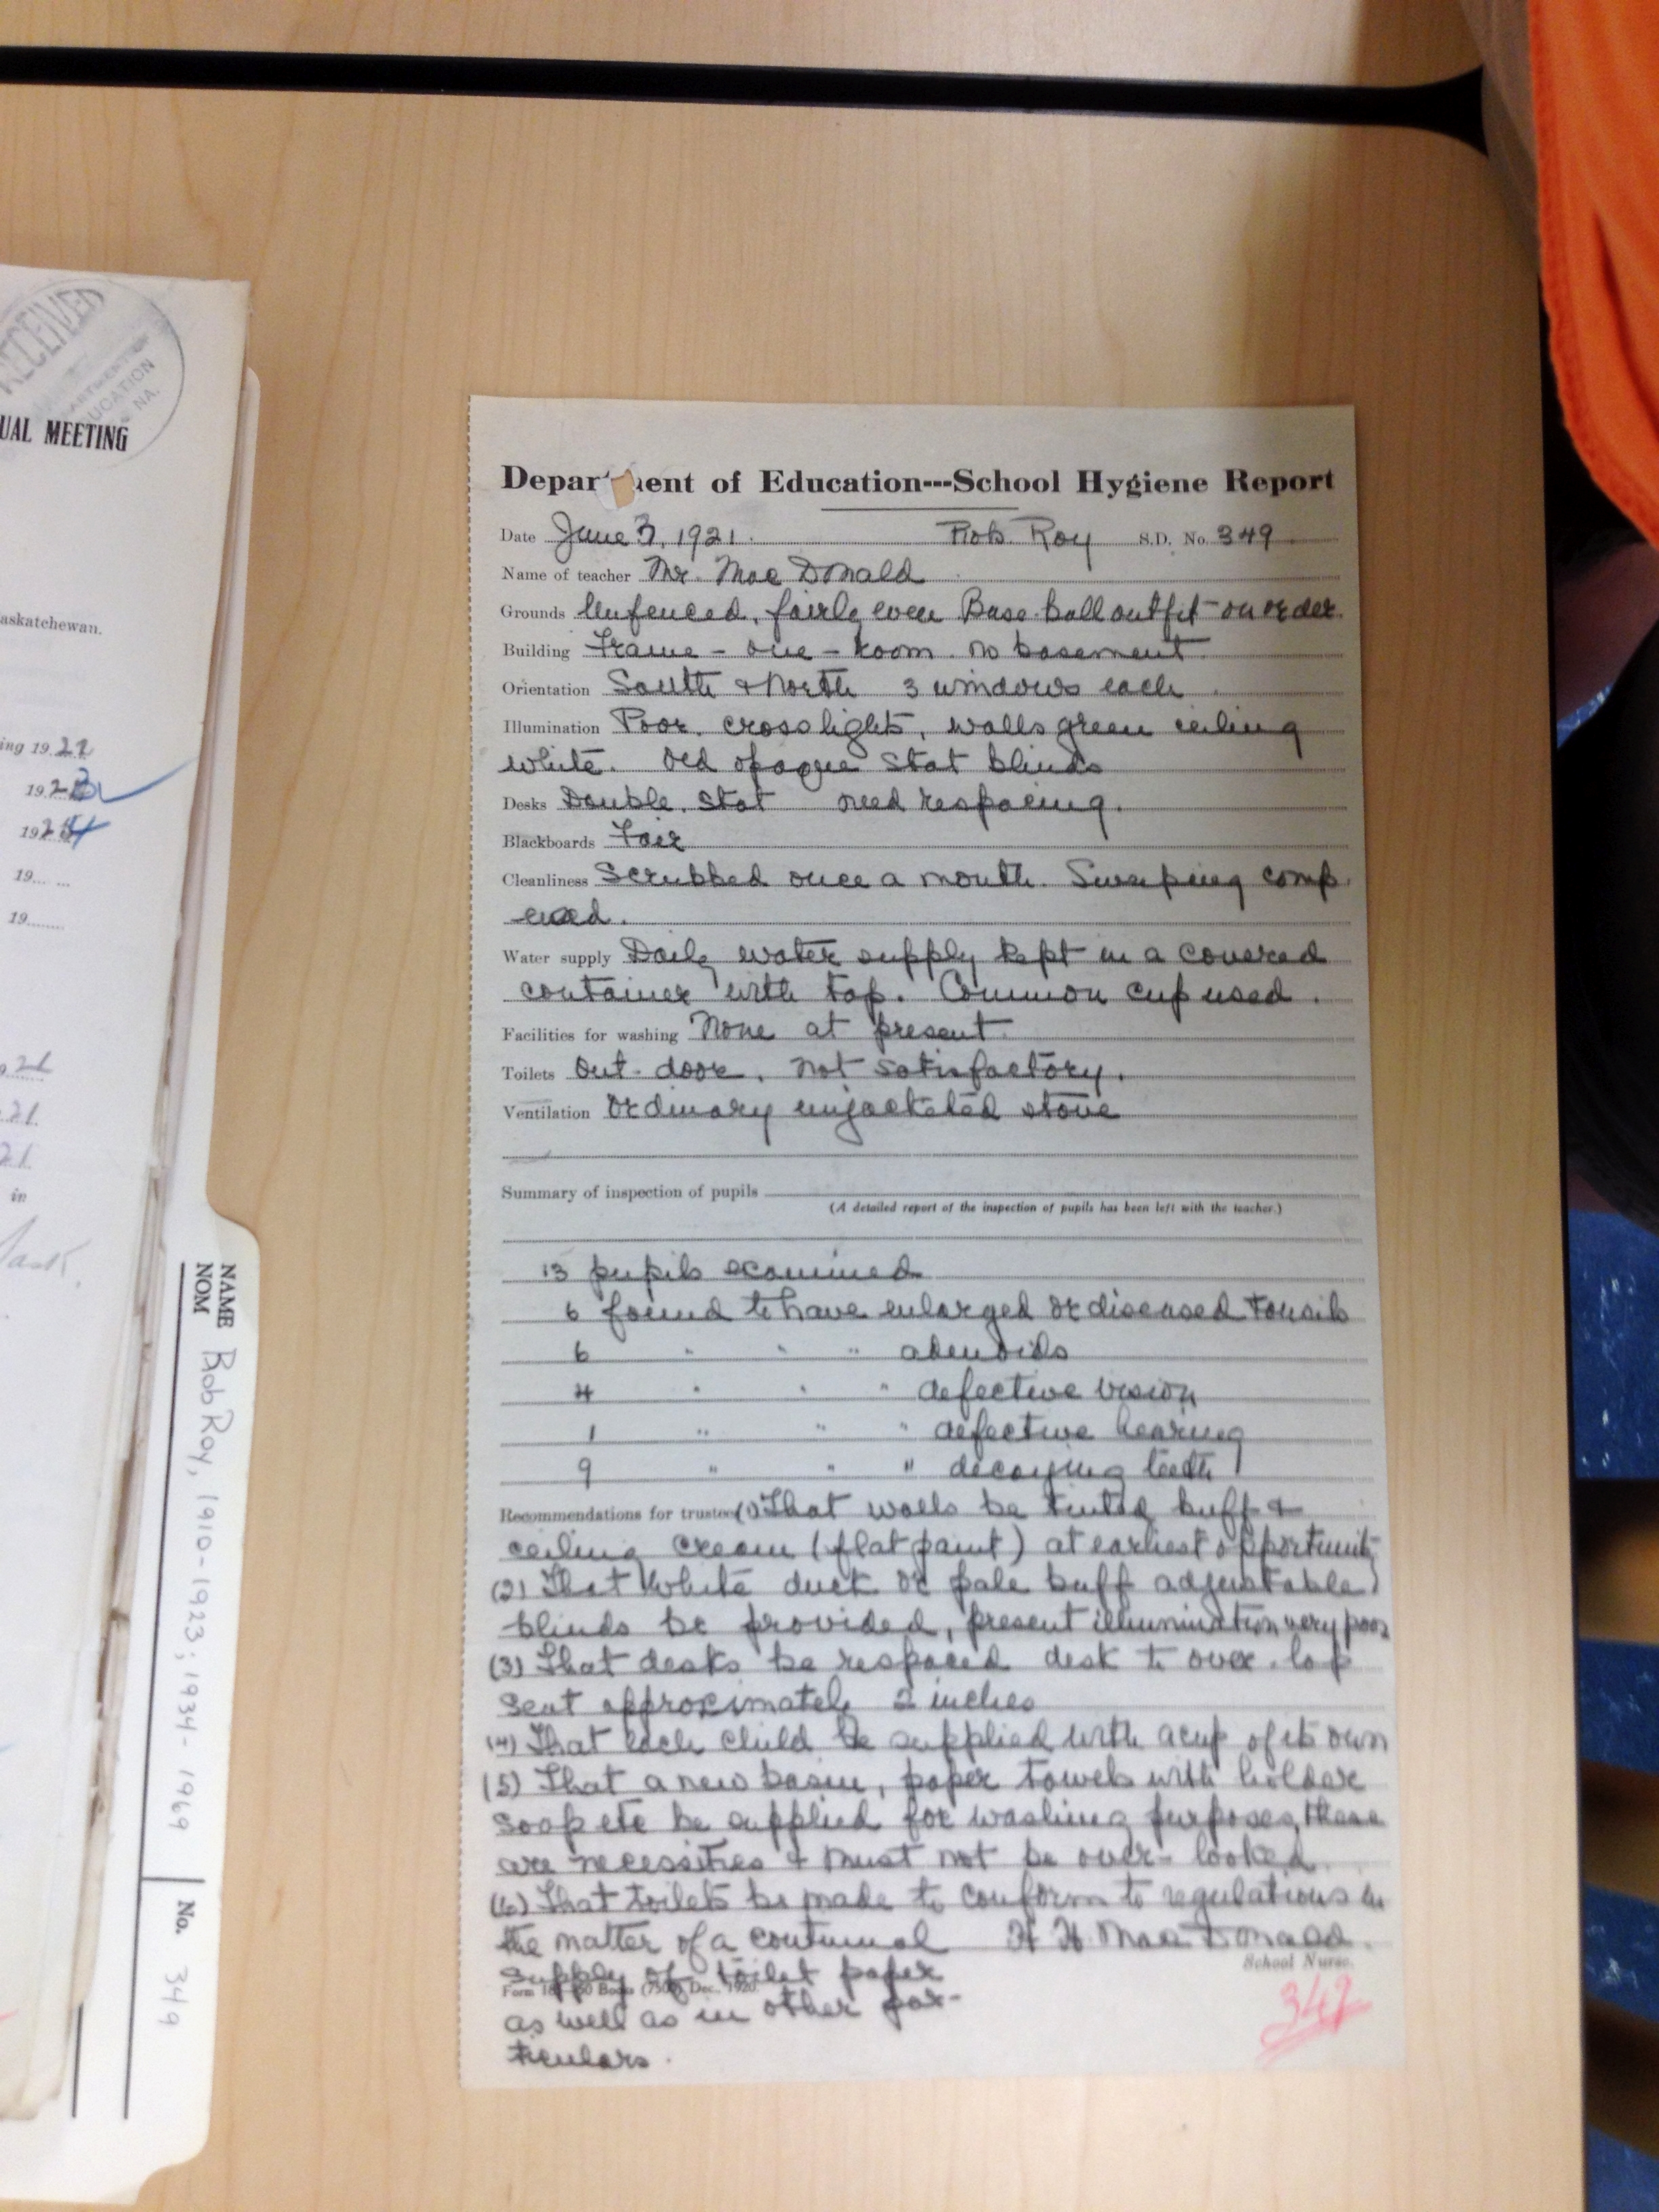 RECEIVED
DEPARTMENT OF
EDUCATION
NA.
UAL MEETING
askatchewan.
ing 19.21
19
19
19
19
21
21
21
in
Sask.
NAME
NOM
Bob Roy, 1910-1923; 1934-1969
No. 349
Depar ent of Education---School Hygiene Report
Date June 3, 1921. Rob. Roy S.D. No. 349
Name of teacher Mr. Mac Donald
Grounds Unfenced, fairly even Base-ball outfit on order.
Building Frame - one - room. no basement.
Orientation South & North 3 windows each.
Illumination Poor, cross lights, walls green ceiling
white. Old opaque stat blinds
Desks Double. Stat need respacing.
Blackboards Fair
Cleanliness Scrubbed once a month. Sweeping comp.
used.
Water supply Daily water supply kept in a covered
container with tap. Common cup used.
Facilities for washing None at present.
Toilets Out-door, not satisfactory.
Ventilation Ordinary unjacketed stove
Summary of inspection of pupils
(A detailed report of the inspection of pupils has been left with the teacher.)
13 pupils examined
6 found to have enlarged or diseased tonsils
6 " " " adenoids
4 " " " defective vision
1 " " " defective hearing
9 " " " decaying teeth
Recommendations for trustees (1) That walls be tinted buff &
ceiling cream (flat paint) at earliest opportunity
(2) That white duck or pale buff adjustable
blinds be provided, present illumination very poor
(3) That desks be respaced desk to over-lap
seat approximately 2 inches
(4) That each child be supplied with a cup of its own
(5) That a new basin, paper towels with holder
soap etc be supplied for washing purposes, these
are necessities & must not be over-looked.
(6) That toilets be made to conform to regulations in
the matter of a continual H H MacDonald.
School Nurse.
supply of toilet paper
Dec., 1920.
as well as in other par-
ticulars.
349